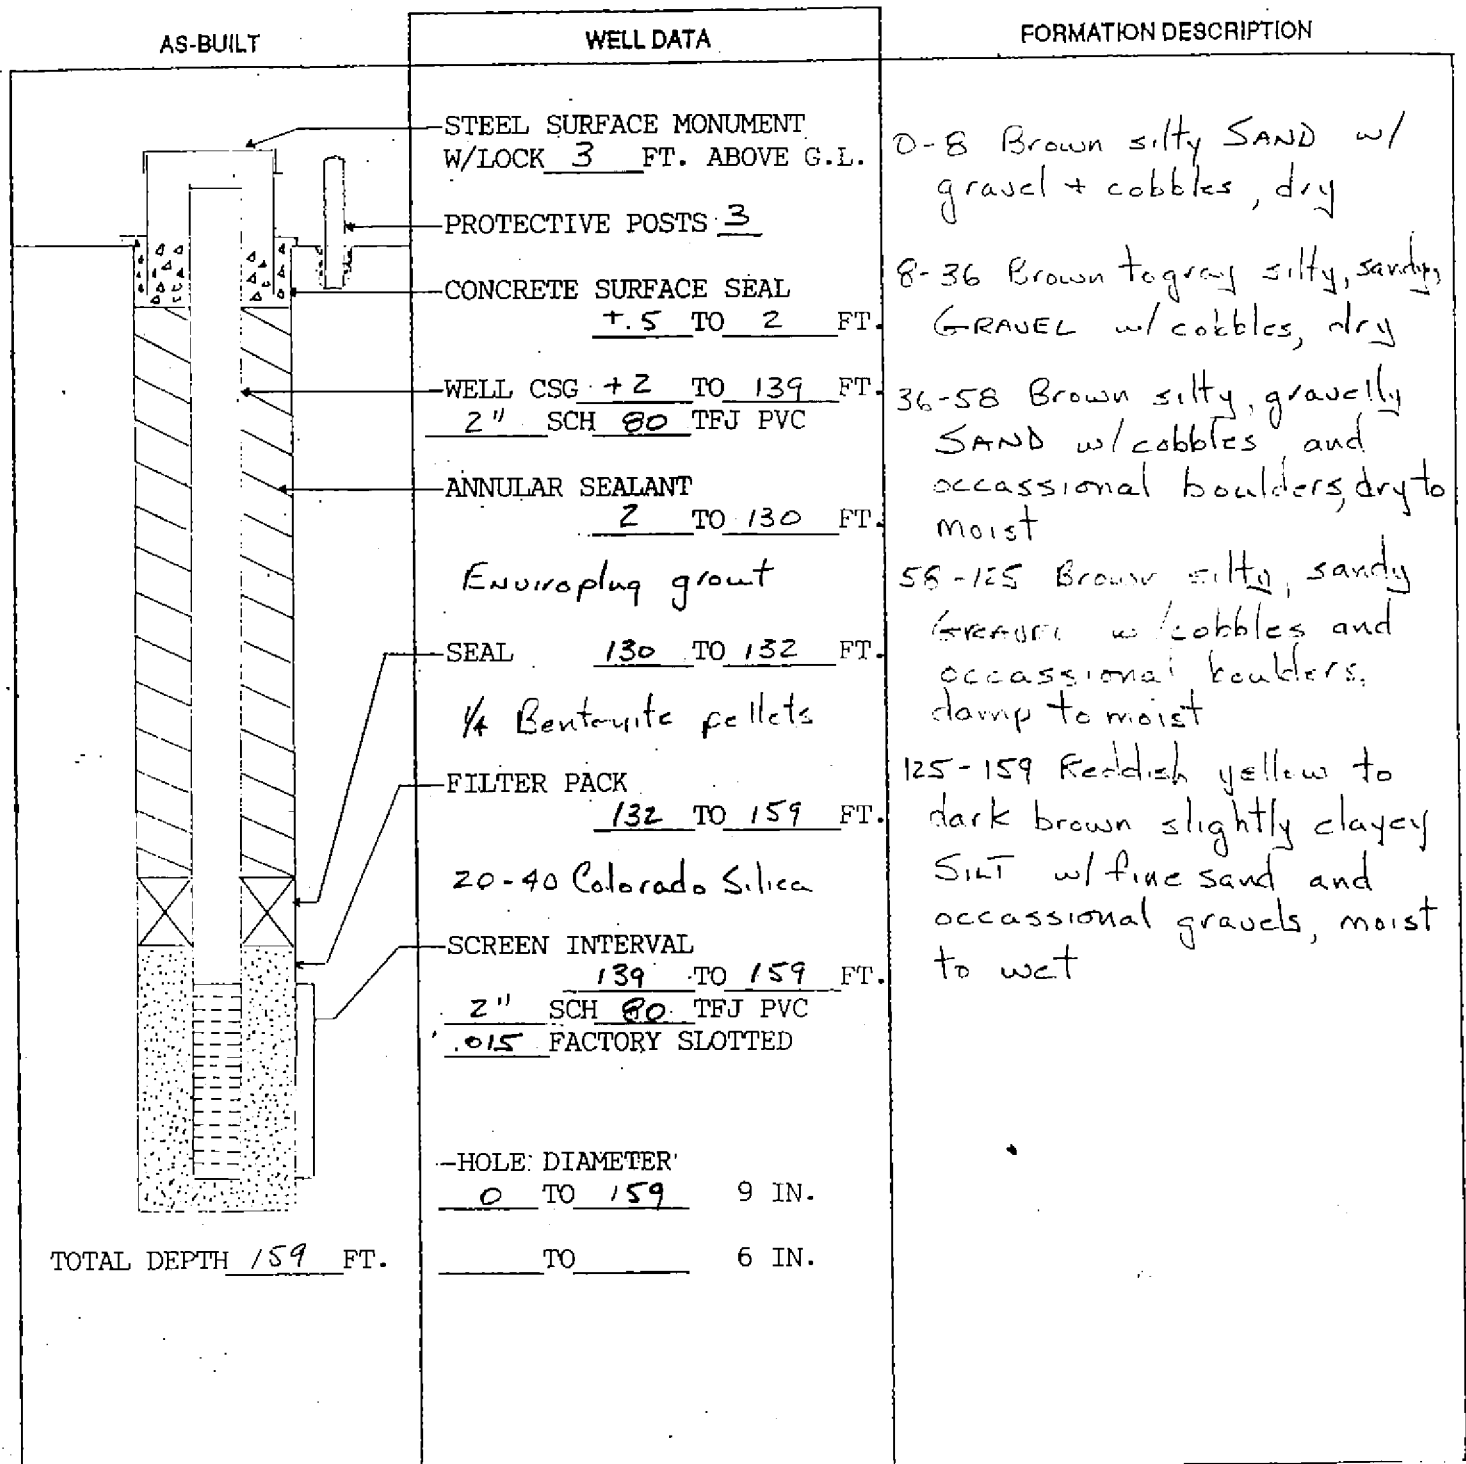 AS-BUILT
WELL DATA
FORMATION DESCRIPTION
STEEL SURFACE MONUMENT
W/LOCK 3 FT. ABOVE G.L.
PROTECTIVE POSTS 3
CONCRETE SURFACE SEAL
+.5 TO 2 FT.
WELL CSG +2 TO 139 FT.
2" SCH 80 TFJ PVC
ANNULAR SEALANT
2 TO 130 FT.
Enviroplug grout
SEAL 130 TO 132 FT.
1/4 Bentonite pellets
FILTER PACK
132 TO 159 FT.
20-40 Colorado Silica
SCREEN INTERVAL
139 TO 159 FT.
2" SCH 80 TFJ PVC
.015 FACTORY SLOTTED
HOLE DIAMETER
0 TO 159 9 IN.
TO 6 IN.
TOTAL DEPTH 159 FT.
0-8 Brown silty SAND w/
gravel + cobbles, dry
8-36 Brown to gray silty, sandy,
GRAVEL w/ cobbles, dry
36-58 Brown silty, gravelly
SAND w/ cobbles and
occassional boulders, dry to
moist
58-125 Brown silty, sandy
GRAVEL w/ cobbles and
occassional boulders,
damp to moist
125-159 Reddish yellow to
dark brown slightly clayey
SILT w/ fine sand and
occassional gravels, moist
to wet